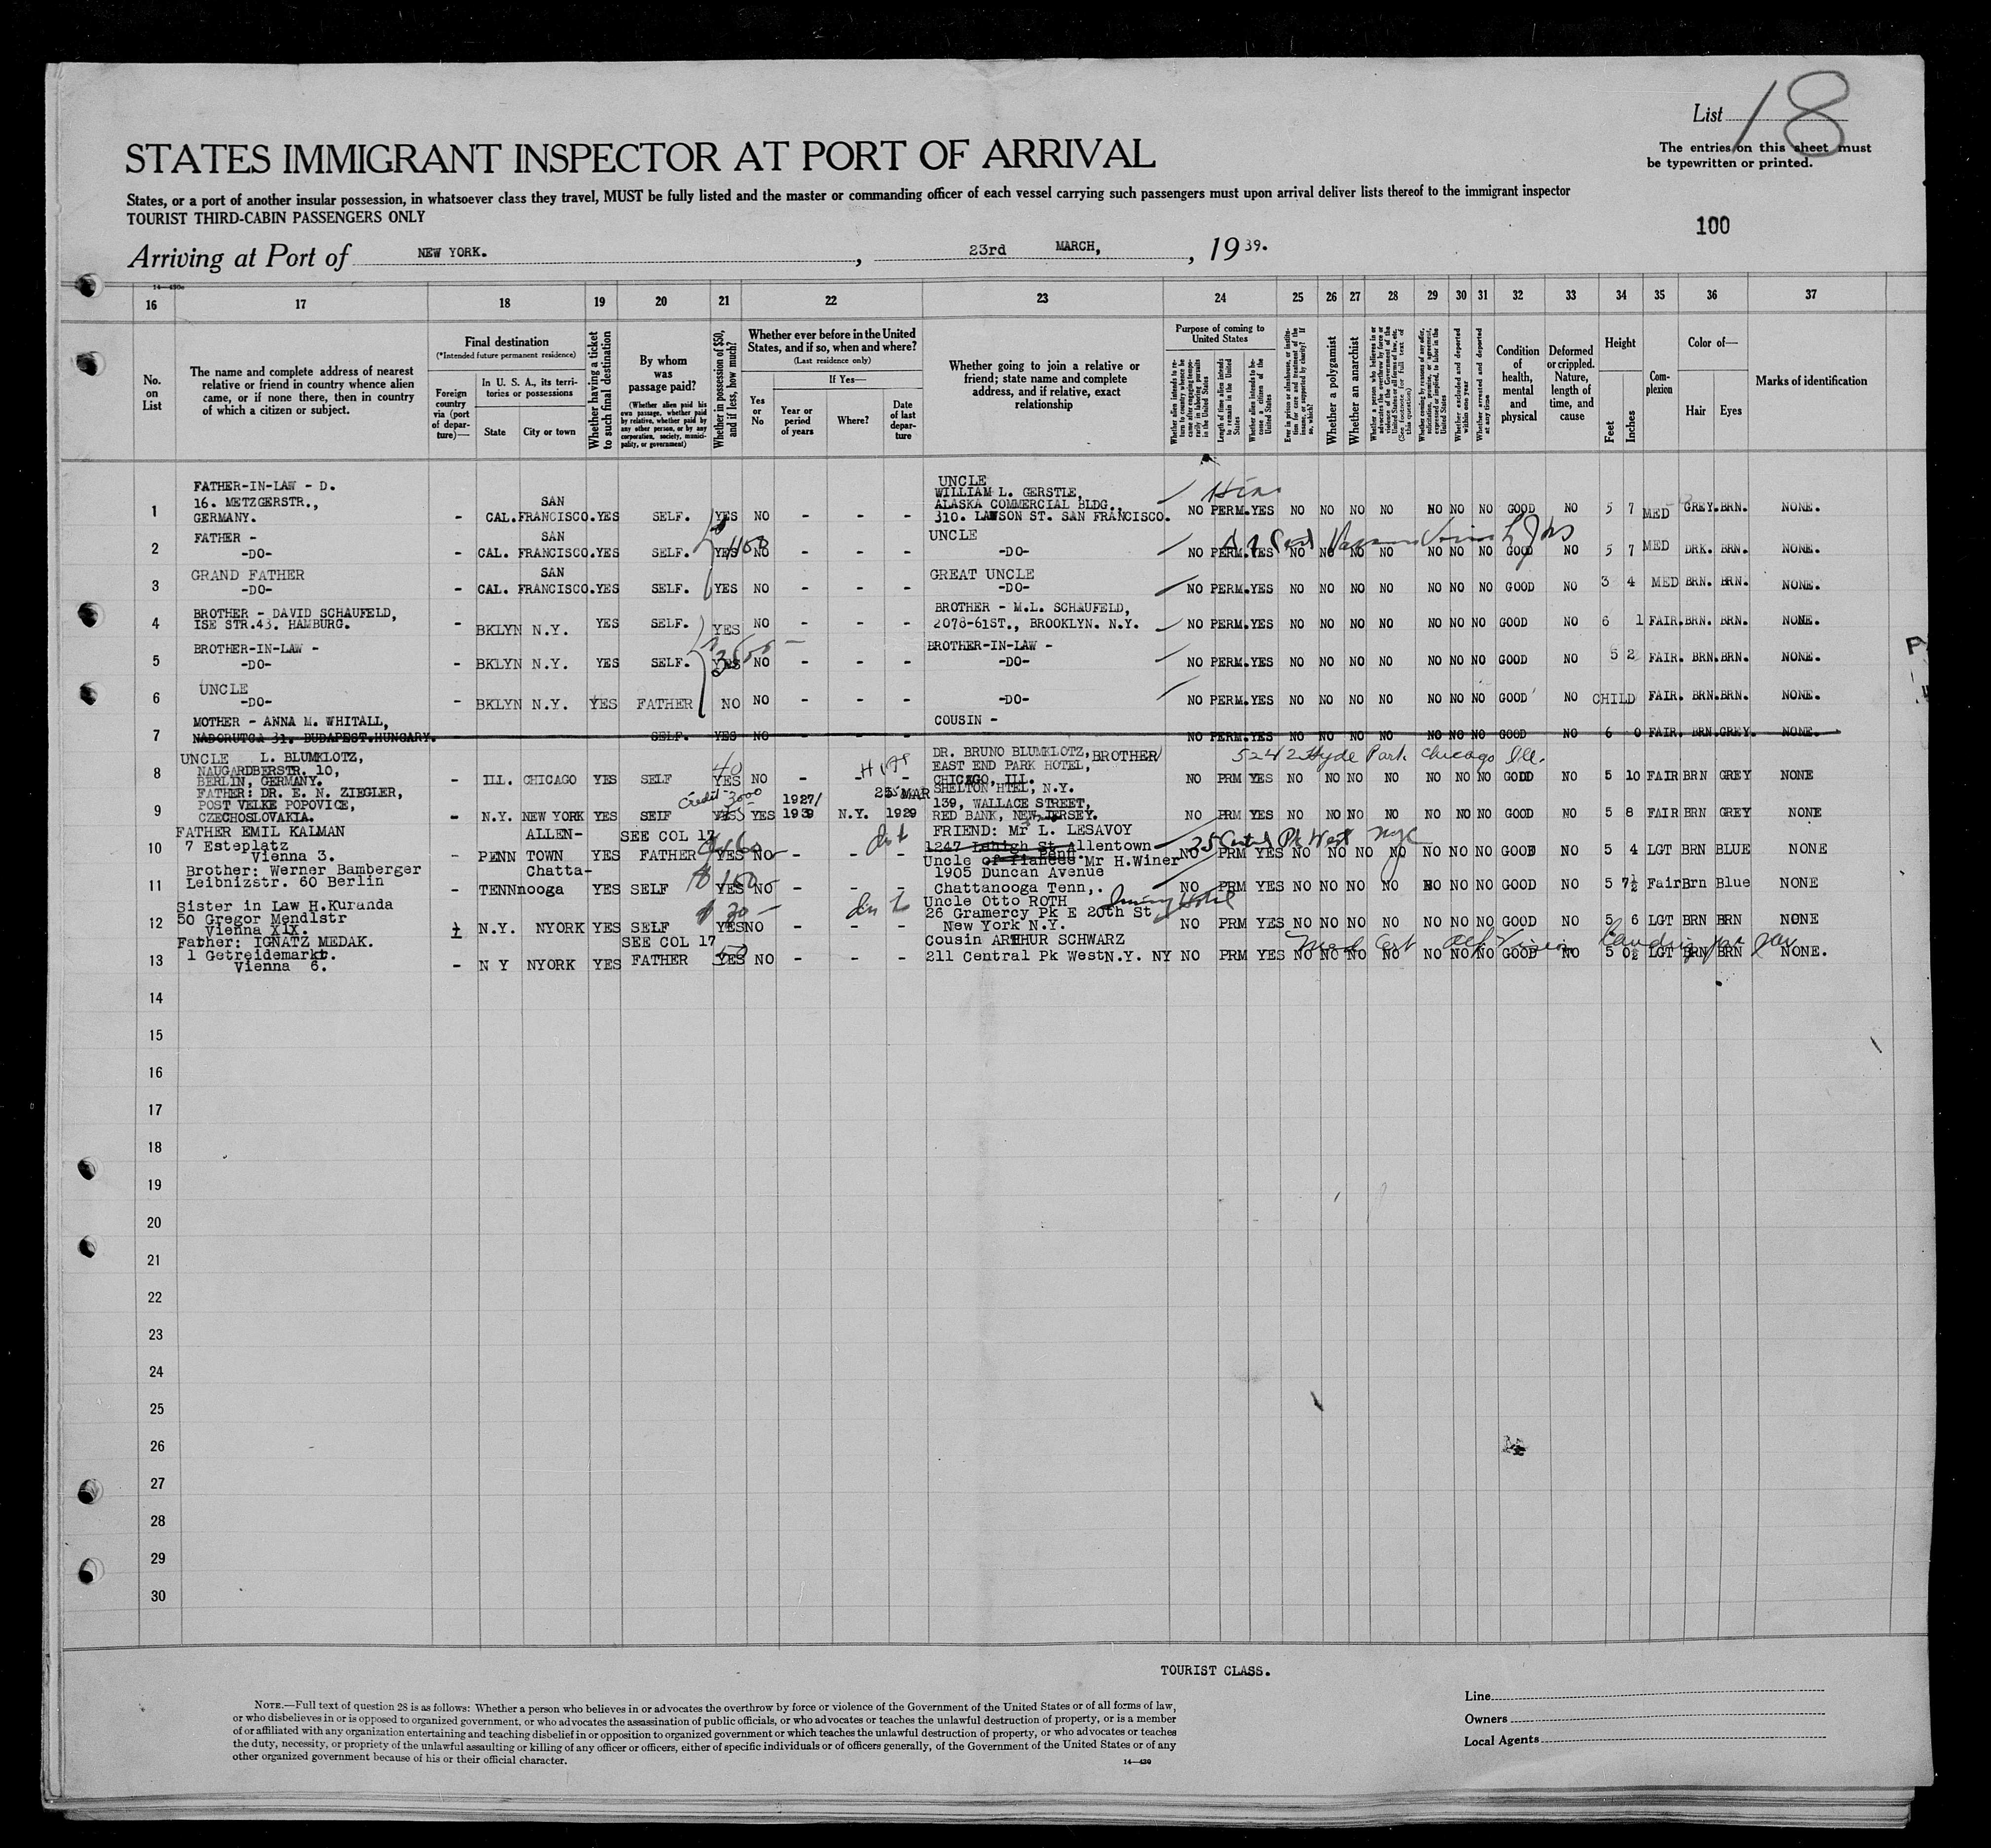 List 18
The entries on this sheet must
be typewritten or printed.
STATES IMMIGRANT INSPECTOR AT PORT OF ARRIVAL
States, or a port of another insular possession, in whatsoever class they travel, MUST be fully listed and the master or commanding officer of each vessel carrying such passengers must upon arrival deliver lists thereof to the immigrant inspector
TOURIST THIRD-CABIN PASSENGERS ONLY
100
Arriving at Port of NEW YORK. , 23rd MARCH, , 19 39.
16 17 18 19 20 21 22 23 24 25 26 27 28 29 30 31 32 33 34 35 36 37
No. on List
The name and complete address of nearest
relative or friend in country whence alien
came, or if none there, then in country
of which a citizen or subject.
Final destination
(*Intended future permanent residence)
Foreign country via (port of departure)—
In U. S. A., its territories or possessions
State
City or town
Whether having a ticket to such final destination
By whom was passage paid?
(Whether alien paid his own passage, whether paid by relative, whether paid by any other person, or by any corporation, society, municipality, or government)
Whether in possession of $50, and if less, how much?
Whether ever before in the United States, and if so, when and where?
(Last residence only)
Yes or No
If Yes—
Year or period of years
Where?
Date of last departure
Whether going to join a relative or
friend; state name and complete
address, and if relative, exact
relationship
Purpose of coming to United States
Whether alien intends to return to country whence he came after engaging temporarily in laboring pursuits in the United States
Length of time alien intends to remain in the United States
Whether alien intends to become a citizen of the United States
Ever in prison or almshouse, or institution for care and treatment of the insane, or supported by charity? If so, which?
Whether a polygamist
Whether an anarchist
Whether coming by reason of any offer, solicitation, promise, or agreement, expressed or implied, to labor in the United States
Whether excluded and deported within one year
Whether arrested and deported at any time
Condition of health, mental and physical
Deformed or crippled. Nature, length of time, and cause
Height
Feet
Inches
Complexion
Color of—
Hair
Eyes
Marks of identification
1 FATHER-IN-LAW - D.
16. METZGERSTR.,
GERMANY. - CAL. SAN FRANCISCO. YES SELF. YES NO - - - UNCLE
WILLIAM L. GERSTLE,
ALASKA COMMERCIAL BLDG.,
310. LAWSON ST. SAN FRANCISCO. NO PERM. YES NO NO NO NO NO NO NO GOOD NO 5 7 MED GREY. BRN. NONE.
2 FATHER -
-DO- - CAL. SAN FRANCISCO. YES SELF. YES NO - - - UNCLE
-DO- NO PERM. YES NO NO NO NO NO NO NO GOOD NO 5 7 MED DRK. BRN. NONE.
3 GRAND FATHER
-DO- - CAL. SAN FRANCISCO. YES SELF. YES NO - - - GREAT UNCLE
-DO- NO PERM. YES NO NO NO NO NO NO NO GOOD NO 3 4 MED BRN. BRN. NONE.
4 BROTHER - DAVID SCHAUFELD,
ISE STR.43. HAMBURG. - BKLYN N.Y. YES SELF. YES NO - - - BROTHER - M.L. SCHAUFELD,
2078-61ST., BROOKLYN. N.Y. NO PERM. YES NO NO NO NO NO NO NO GOOD NO 6 1 FAIR. BRN. BRN. NONE.
5 BROTHER-IN-LAW -
-DO- - BKLYN N.Y. YES SELF. YES NO - - - BROTHER-IN-LAW -
-DO- NO PERM. YES NO NO NO NO NO NO NO GOOD NO 5 2 FAIR. BRN. BRN. NONE.
6 UNCLE
-DO- - BKLYN N.Y. YES FATHER NO NO - - - -DO- NO PERM. YES NO NO NO NO NO NO NO GOOD NO CHILD FAIR. BRN. BRN. NONE.
7 MOTHER - ANNA M. WHITALL,
NADORUTCA 31. BUDAPEST.HUNGARY. SELF. YES NO COUSIN - NO PERM. YES NO NO NO NO NO NO NO GOOD NO 6 0 FAIR. BRN. GREY. NONE.
8 UNCLE L. BLUMKLOTZ,
NAUGARDBERSTR. 10,
BERLIN, GERMANY. - ILL. CHICAGO YES SELF 40 YES NO - - - DR. BRUNO BLUMKLOTZ, BROTHER
EAST END PARK HOTEL,
CHICAGO, ILL. 5242 Hyde Park. Chicago Ill.
NO PRM YES NO NO NO NO NO NO NO GOOD NO 5 10 FAIR BRN GREY NONE
9 FATHER: DR. E. N. ZIEGLER,
POST VELKE POPOVICE,
CZECHOSLOVAKIA. - N.Y. NEW YORK YES SELF Credit 3000 YES YES 1927/ 1939 N.Y. 25 MAR 1929 SHELTON HTEL, N.Y.
139, WALLACE STREET,
RED BANK, NEW JERSEY. NO PRM YES NO NO NO NO NO NO NO GOOD NO 5 8 FAIR BRN GREY NONE
10 FATHER EMIL KALMAN
7 Esteplatz
Vienna 3. - PENN ALLEN-TOWN YES SEE COL 17 FATHER YES NO - - - FRIEND: Mr L. LESAVOY
1247 Lehigh St Allentown
Penn. 25 Central Pk West NYC
NO PRM YES NO NO NO NO NO NO NO GOOD NO 5 4 LGT BRN BLUE NONE
11 Brother: Werner Bamberger
Leibnizstr. 60 Berlin - TENN Chatta-nooga YES SELF $ 150 YES NO - - - Uncle of fiancee Mr H.Winer
1905 Duncan Avenue
Chattanooga Tenn,. NO PRM YES NO NO NO NO NO NO NO GOOD NO 5 7½ Fair Brn Blue NONE
12 Sister in Law H.Kuranda
50 Gregor Mendlstr
Vienna XIX. - N.Y. NYORK YES SELF $ 30 - YES NO - - - Uncle Otto ROTH
26 Gramercy Pk E 20th St
New York N.Y. NO PRM YES NO NO NO NO NO NO NO GOOD NO 5 6 LGT BRN BRN NONE
13 Father: IGNATZ MEDAK.
1 Getreidemarkt.
Vienna 6. - N Y NYORK YES SEE COL 17 FATHER 50 YES NO - - - Cousin ARTHUR SCHWARZ
211 Central Pk West N.Y. NY NO PRM YES NO NO NO NO NO NO NO GOOD NO 5 0½ LGT BRN BRN NONE.
14
15
16
17
18
19
20
21
22
23
24
25
26
27
28
29
30
TOURIST CLASS.
NOTE.—Full text of question 28 is as follows: Whether a person who believes in or advocates the overthrow by force or violence of the Government of the United States or of all forms of law,
or who disbelieves in or is opposed to organized government, or who advocates the assassination of public officials, or who advocates or teaches the unlawful destruction of property, or is a member
of or affiliated with any organization entertaining and teaching disbelief in or opposition to organized government or which teaches the unlawful destruction of property, or who advocates or teaches
the duty, necessity, or propriety of the unlawful assaulting or killing of any officer or officers, either of specific individuals or of officers generally, of the Government of the United States or of any
other organized government because of his or their official character.
14—430
Line
Owners
Local Agents